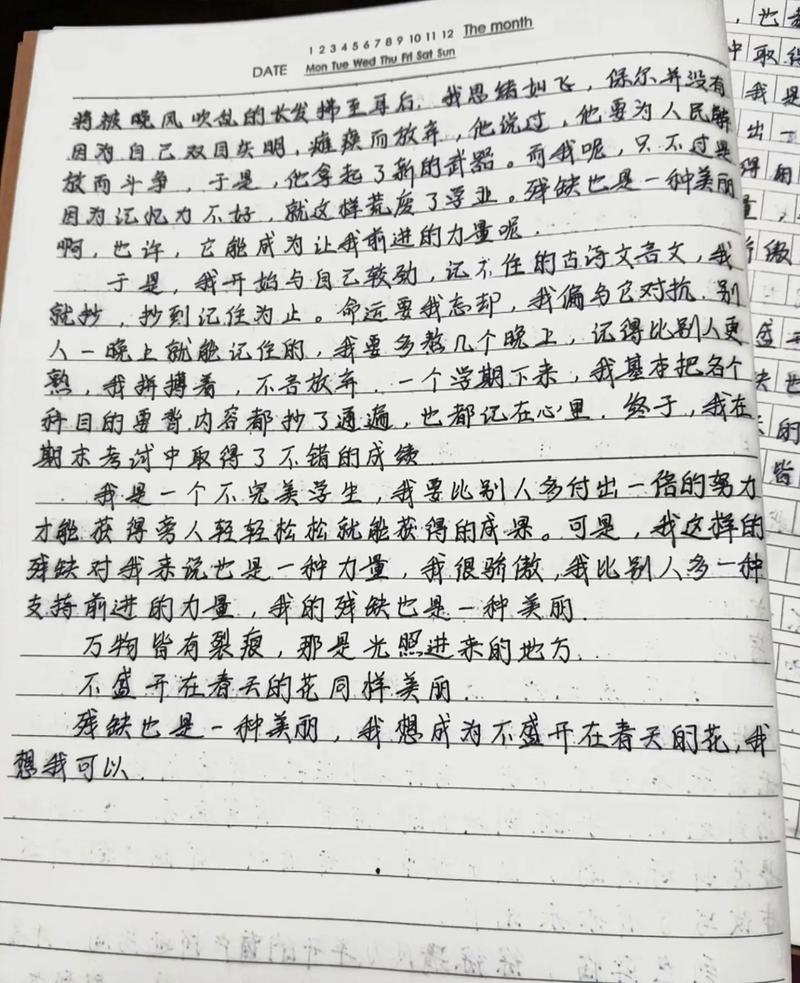 1 2 3 4 5 6 7 8 9 10 11 12 The month
DATE Mon Tue Wed Thu Fri Sat Sun
将被晚风吹乱的长发拂至耳后。我思绪如飞，保尔并没有
因为自己双目失明，瘫痪而放弃，他说过，他要为人民解
放而斗争，于是，他拿起了新的武器。而我呢，只不过是
因为记忆力不好，就这样荒废了学业。残缺也是一种美丽
啊，也许，它能成为让我前进的力量呢．
于是，我开始与自己较劲，记不住的古诗文言文，我
就抄，抄到记住为止。命运要我忘却，我偏与它对抗．别
人一晚上就能记住的，我要多熬几个晚上，记得比别人更
熟，我拼搏着，不言放弃．一个学期下来，我基本把各个
科目的要背内容都抄了通遍，也都记在心里．终于，我在
期末考试中取得了不错的成绩
我是一个不完美学生，我要比别人多付出一倍的努力
才能获得旁人轻轻松松就能获得的成果。可是，我这样的
残缺对我来说也是一种力量，我很骄傲，我比别人多一种
支持前进的力量，我的残缺也是一种美丽．
万物皆有裂痕，那是光照进来的地方．
不盛开在春天的花同样美丽．
残缺也是一种美丽，我想成为不盛开在春天的花，我
想我可以．